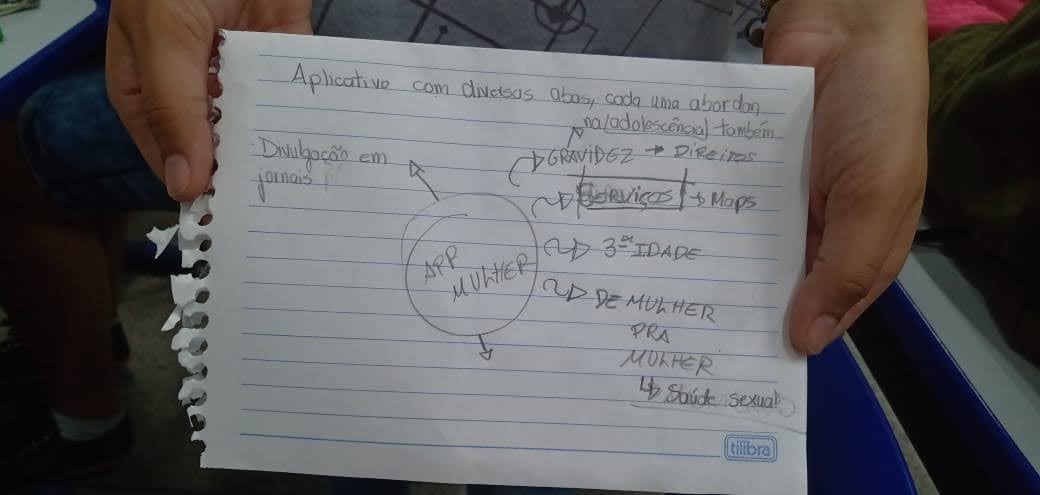 Aplicativo com diversas abas, cada uma abordan
na (adolescência) também
Divulgação em
jornais
GRAVIDEZ → DIREITOS
SERVIÇOS → Maps
APP
MULHER
3ª IDADE
DE MULHER
PRA
MULHER
↳ Saúde sexual
tilibra